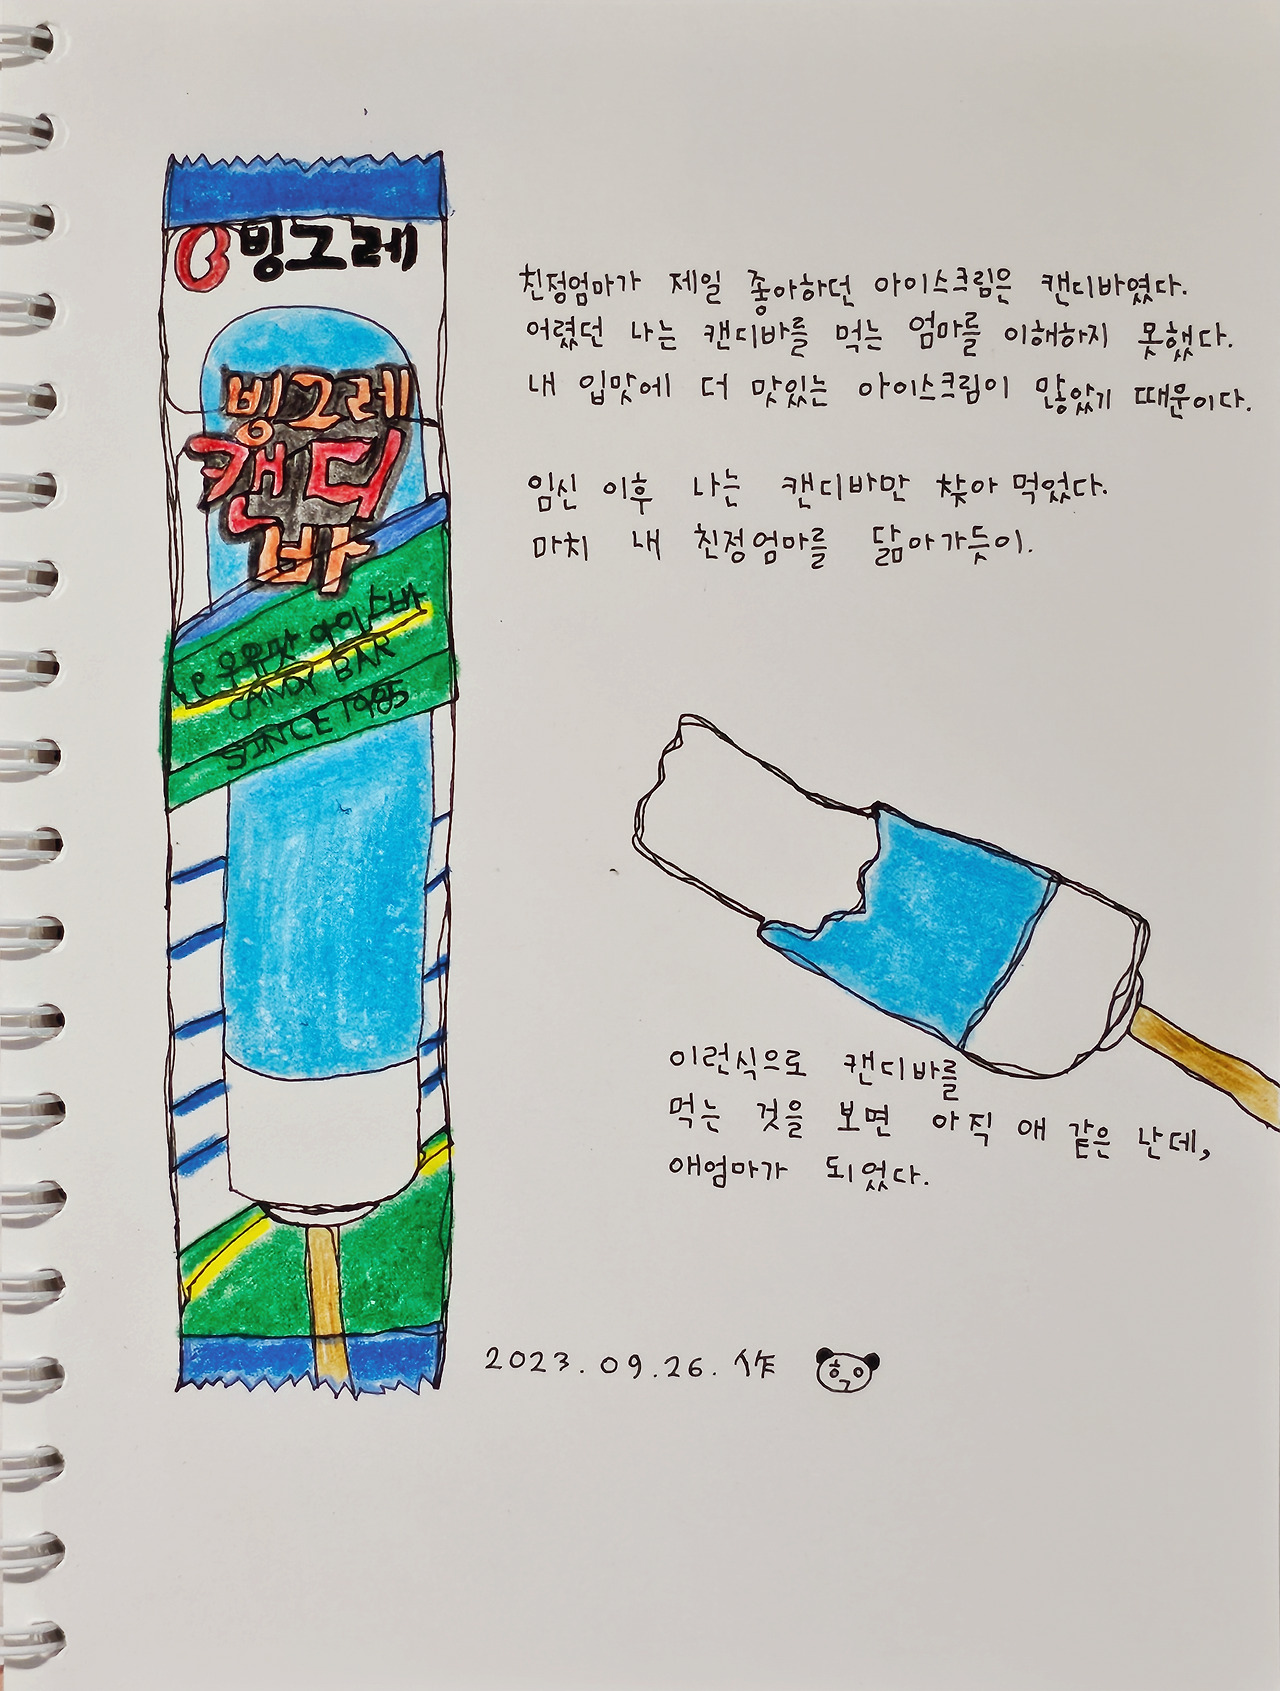 빙그레
빙그레
캔디
바
우유맛 아이스바
CANDY BAR
SINCE 1985
친정엄마가 제일 좋아하던 아이스크림은 캔디바였다.
어렸던 나는 캔디바를 먹는 엄마를 이해하지 못했다.
내 입맛에 더 맛있는 아이스크림이 많았기 때문이다.
임신 이후 나는 캔디바만 찾아 먹었다.
마치 내 친정엄마를 닮아가듯이.
이런식으로 캔디바를
먹는 것을 보면 아직 애 같은 난데,
애엄마가 되었다.
2023.09.26. 作